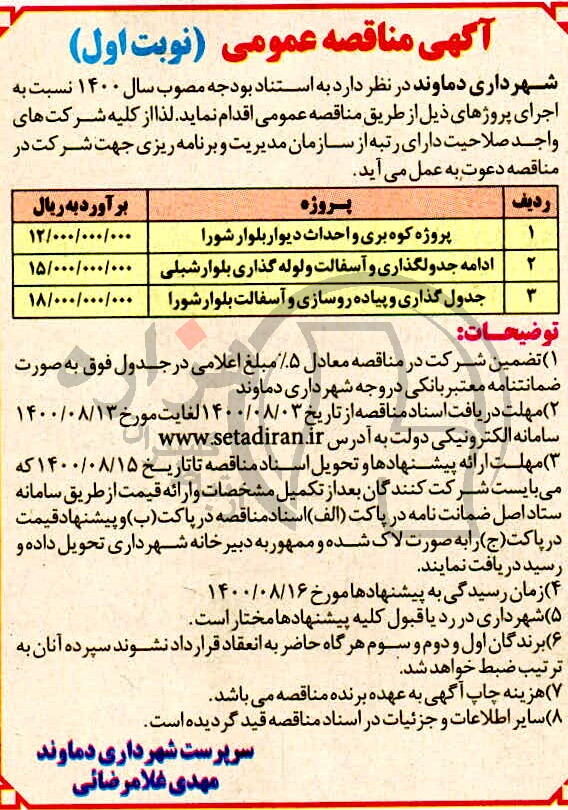 آگهی مناقصه عمومی (نوبت اول)
شهرداری دماوند در نظر دارد به استناد بودجه مصوب سال ۱۴۰۰ نسبت به
اجرای پروژهای ذیل از طریق مناقصه عمومی اقدام نماید. لذا از کلیه شرکت های
واجد صلاحیت دارای رتبه از سازمان مدیریت و برنامه ریزی جهت شرکت در
مناقصه دعوت به عمل می آید.
ردیف پروژه برآورد به ریال
۱ پروژه کوه بری و احداث دیوار بلوار شورا ۱۲/۰۰۰/۰۰۰/۰۰۰
۲ ادامه جدولگذاری و آسفالت و لوله گذاری بلوار شبلی ۱۵/۰۰۰/۰۰۰/۰۰۰
۳ جدول گذاری و پیاده روسازی و آسفالت بلوار شورا ۱۸/۰۰۰/۰۰۰/۰۰۰
توضیحات:
۱)تضمین شرکت در مناقصه معادل ۵٪ مبلغ اعلامی در جدول فوق به صورت
ضمانتنامه معتبر بانکی در وجه شهرداری دماوند
۲)مهلت دریافت اسناد مناقصه از تاریخ ۱۴۰۰/۰۸/۰۳ لغایت مورخ ۱۴۰۰/۰۸/۱۳
سامانه الکترونیکی دولت به آدرس www.setadiran.ir
۳)مهلت ارائه پیشنهادها و تحویل اسناد مناقصه تا تاریخ ۱۴۰۰/۰۸/۱۵ که
می بایست شرکت کنندگان بعد از تکمیل مشخصات و ارائه قیمت از طریق سامانه
ستاد اصل ضمانت نامه در پاکت (الف) اسناد مناقصه در پاکت (ب) و پیشنهاد قیمت
در پاکت (ج) را به صورت لاک شده و ممهور به دبیرخانه شهرداری تحویل داده و
رسید دریافت نمایند.
۴)زمان رسیدگی به پیشنهادها مورخ ۱۴۰۰/۰۸/۱۶
۵)شهرداری در رد یا قبول کلیه پیشنهادها مختار است.
۶)برندگان اول و دوم و سوم هرگاه حاضر به انعقاد قرارداد نشوند سپرده آنان به
ترتیب ضبط خواهد شد.
۷)هزینه چاپ آگهی به عهده برنده مناقصه می باشد.
۸)سایر اطلاعات و جزئیات در اسناد مناقصه قید گردیده است.
سرپرست شهرداری دماوند
مهدی غلامرضائی
هزاره